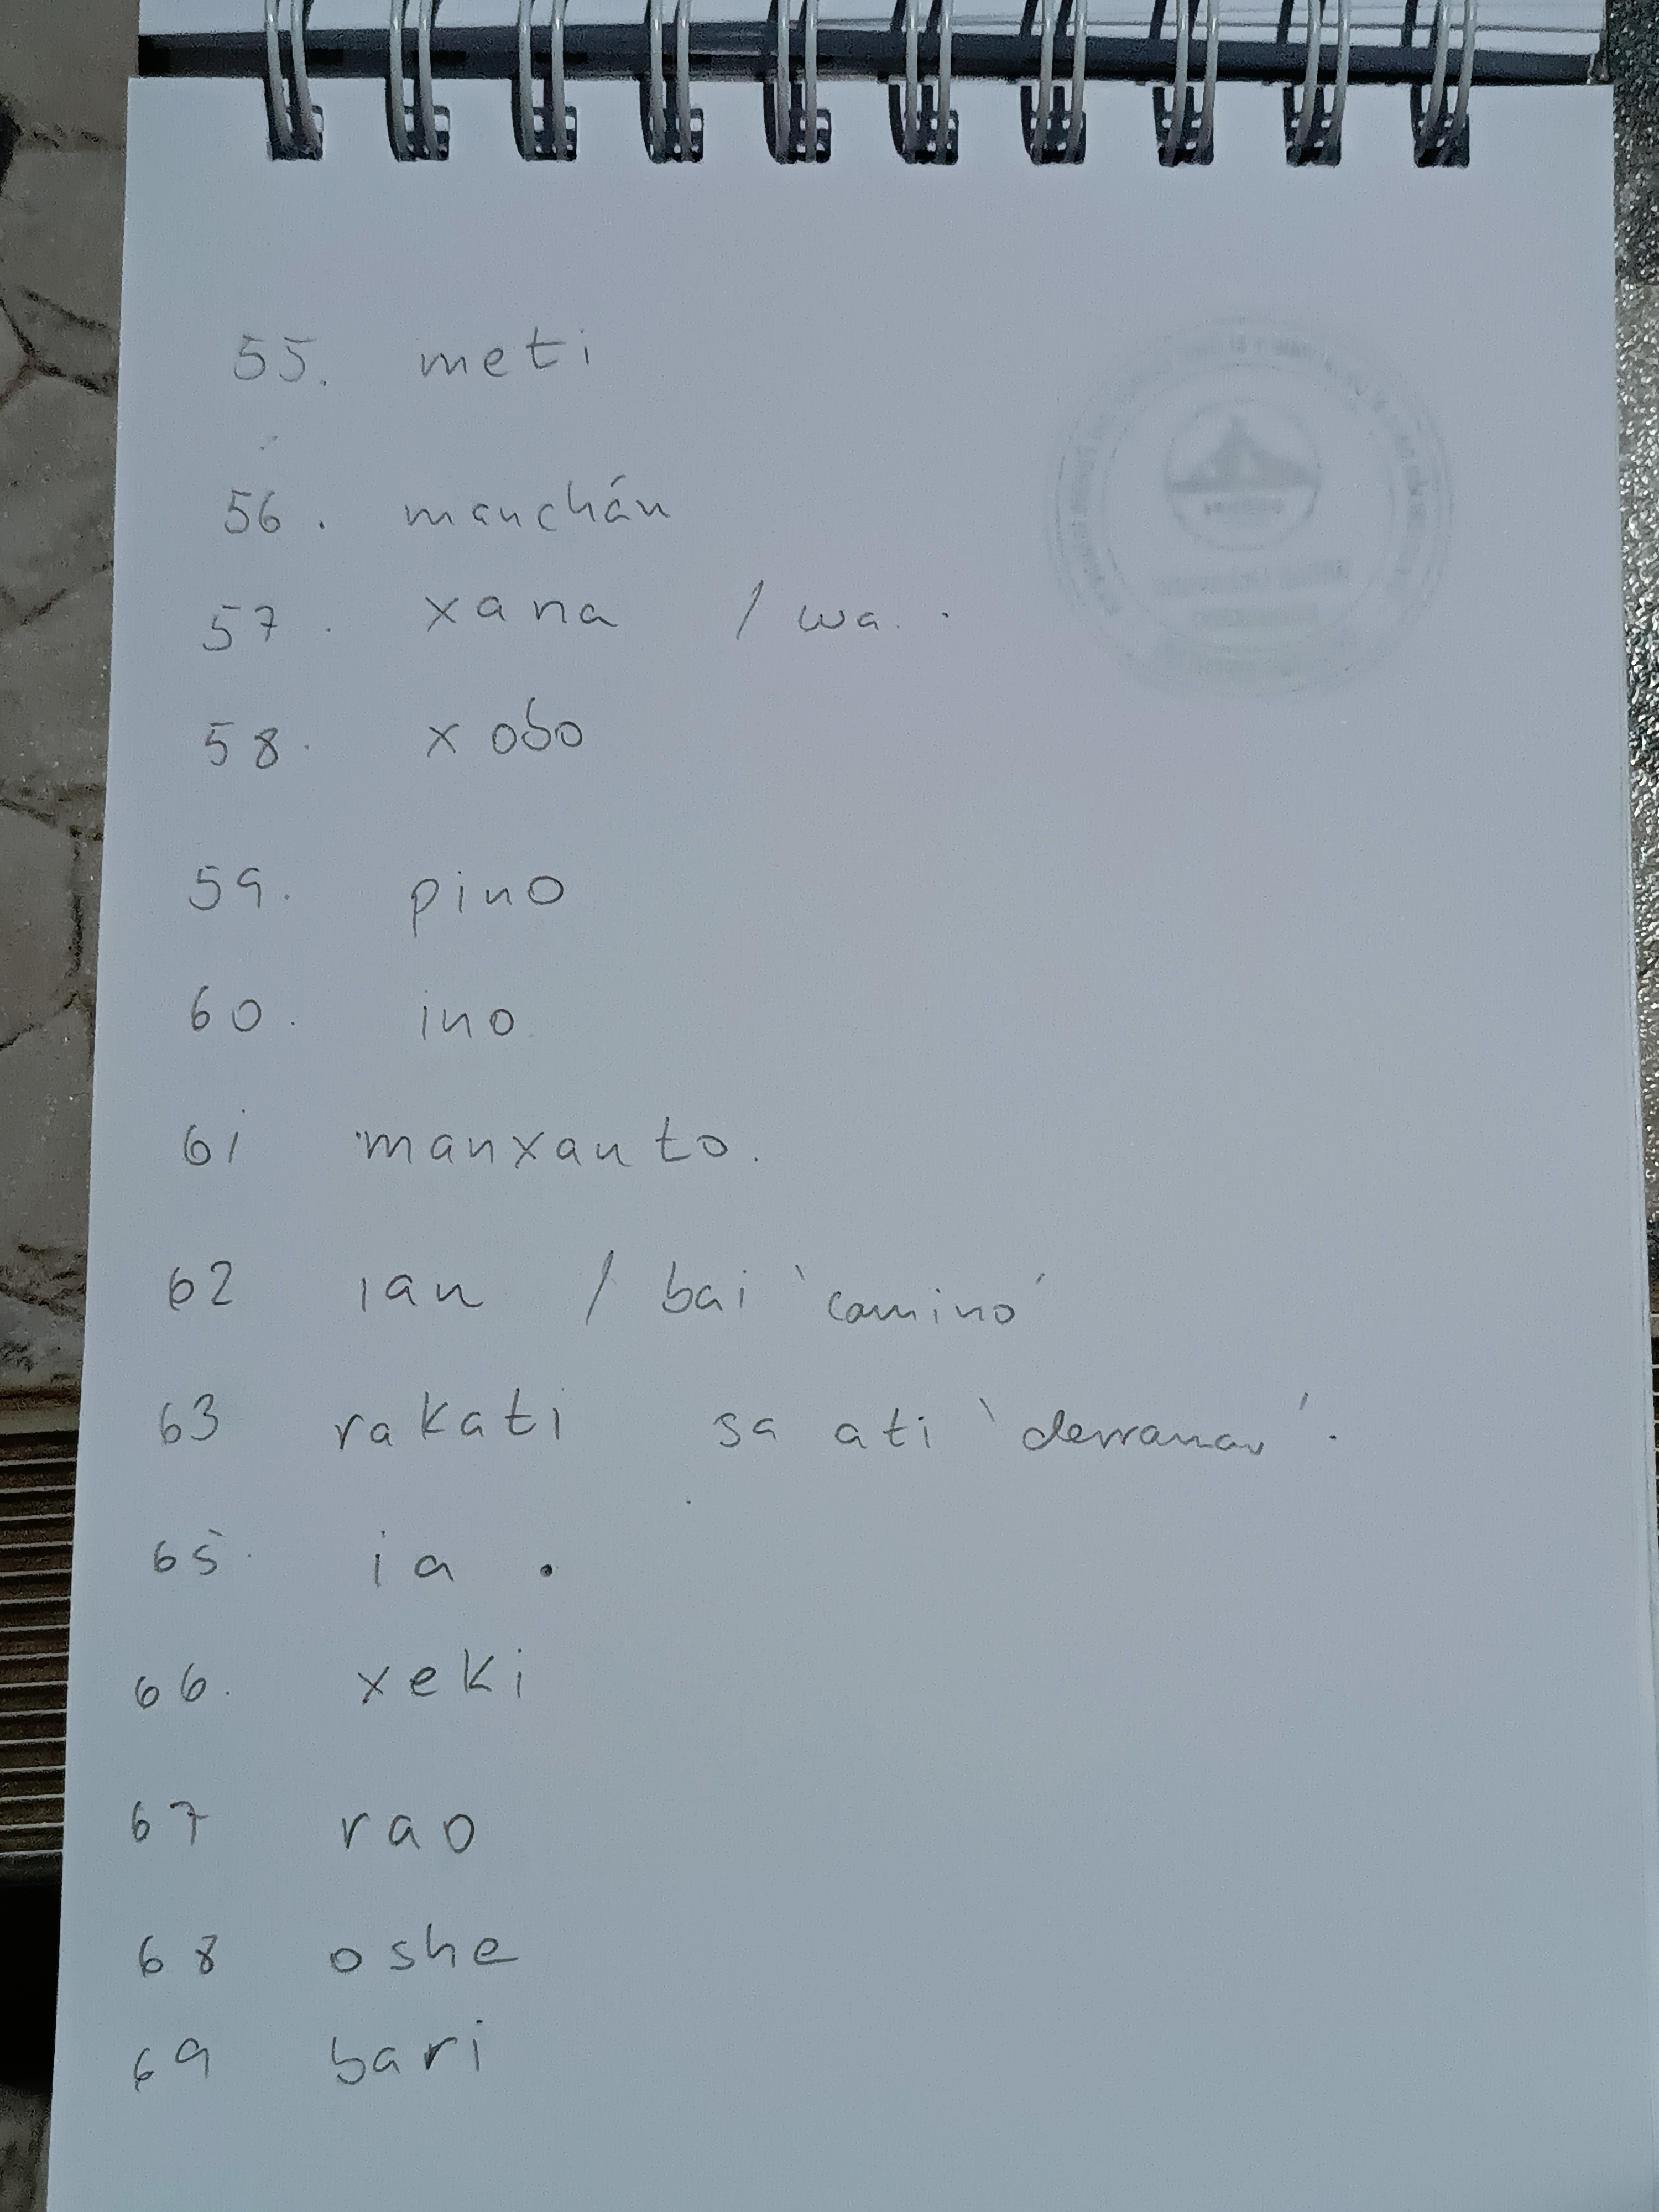 55. meti
56. manchán
57. xana / wa.
58. xobo
59. pino
60. ino
61 manxanto.
62 ian / bai 'camino'
63 rakati sa ati 'derramar'.
65. ia .
66. xeki
67 rao
68 oshe
69 bari